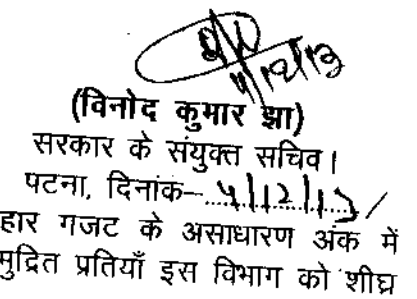 4/12/13
(विनोद कुमार झा)
सरकार के संयुक्त सचिव।
पटना, दिनांक–..4/12/13../
हार गजट के असाधारण अंक में
मुद्रित प्रतियाँ इस विभाग को शीघ्र